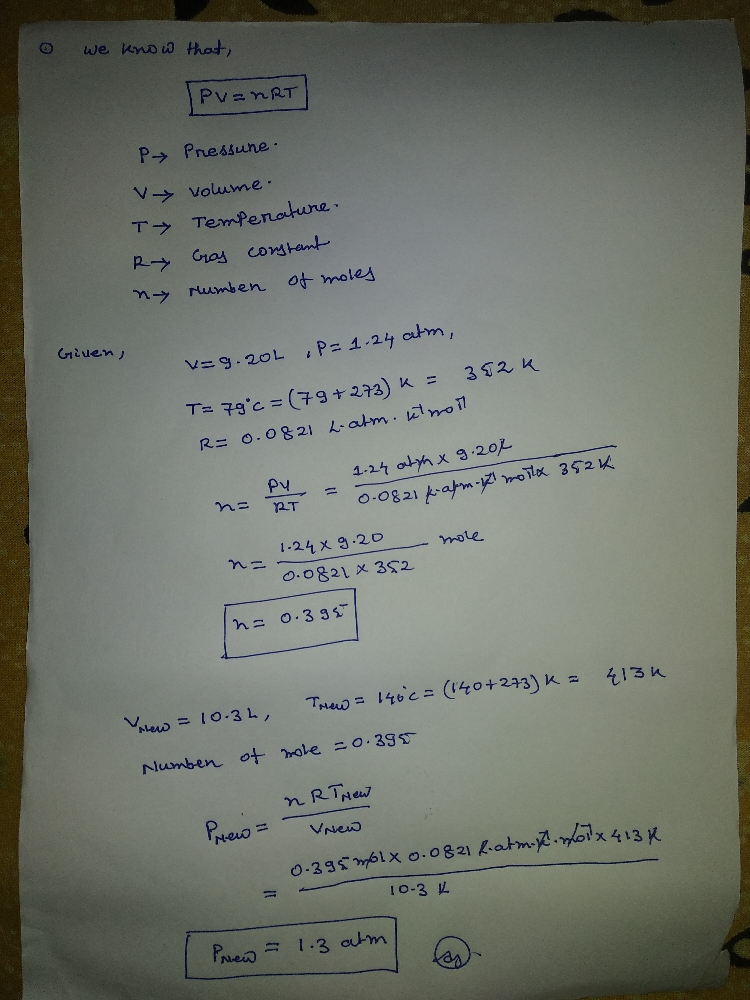 ⊙ We know that,
PV = nRT
P→ Pressure.
V→ volume.
T→ Temperature.
R→ Gas constant
n→ Number of moles
Given, V= 9.20L , P= 1.24 atm,
T= 79°c = (79+273) K = 352 K
R= 0.0821 L.atm. K⁻¹ mol⁻¹
n= PV/RT = 1.24 atm x 9.20L / 0.0821 L.atm.K⁻¹ mol⁻¹ x 352 K
n= 1.24 x 9.20 / 0.0821 x 352 mole
n= 0.395
VNew = 10.3 L, TNew = 140°c = (140+273) K = 413 K
Number of mole = 0.395
PNew = n R TNew / VNew
= 0.395 mol x 0.0821 L.atm.K⁻¹.mol⁻¹ x 413 K / 10.3 K
PNew = 1.3 atm